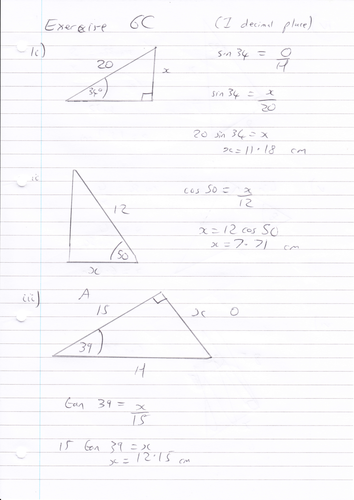 Exercise 6C (1 decimal place)
1i)
20
34°
x
sin 34 = O/H
sin 34 = x/20
20 sin 34 = x
x = 11.18 cm
ii
12
50
x
cos 50 = x/12
x = 12 cos 50
x = 7.71 cm
iii)
A
15
x O
39
H
tan 39 = x/15
15 tan 39 = x
x = 12.15 cm